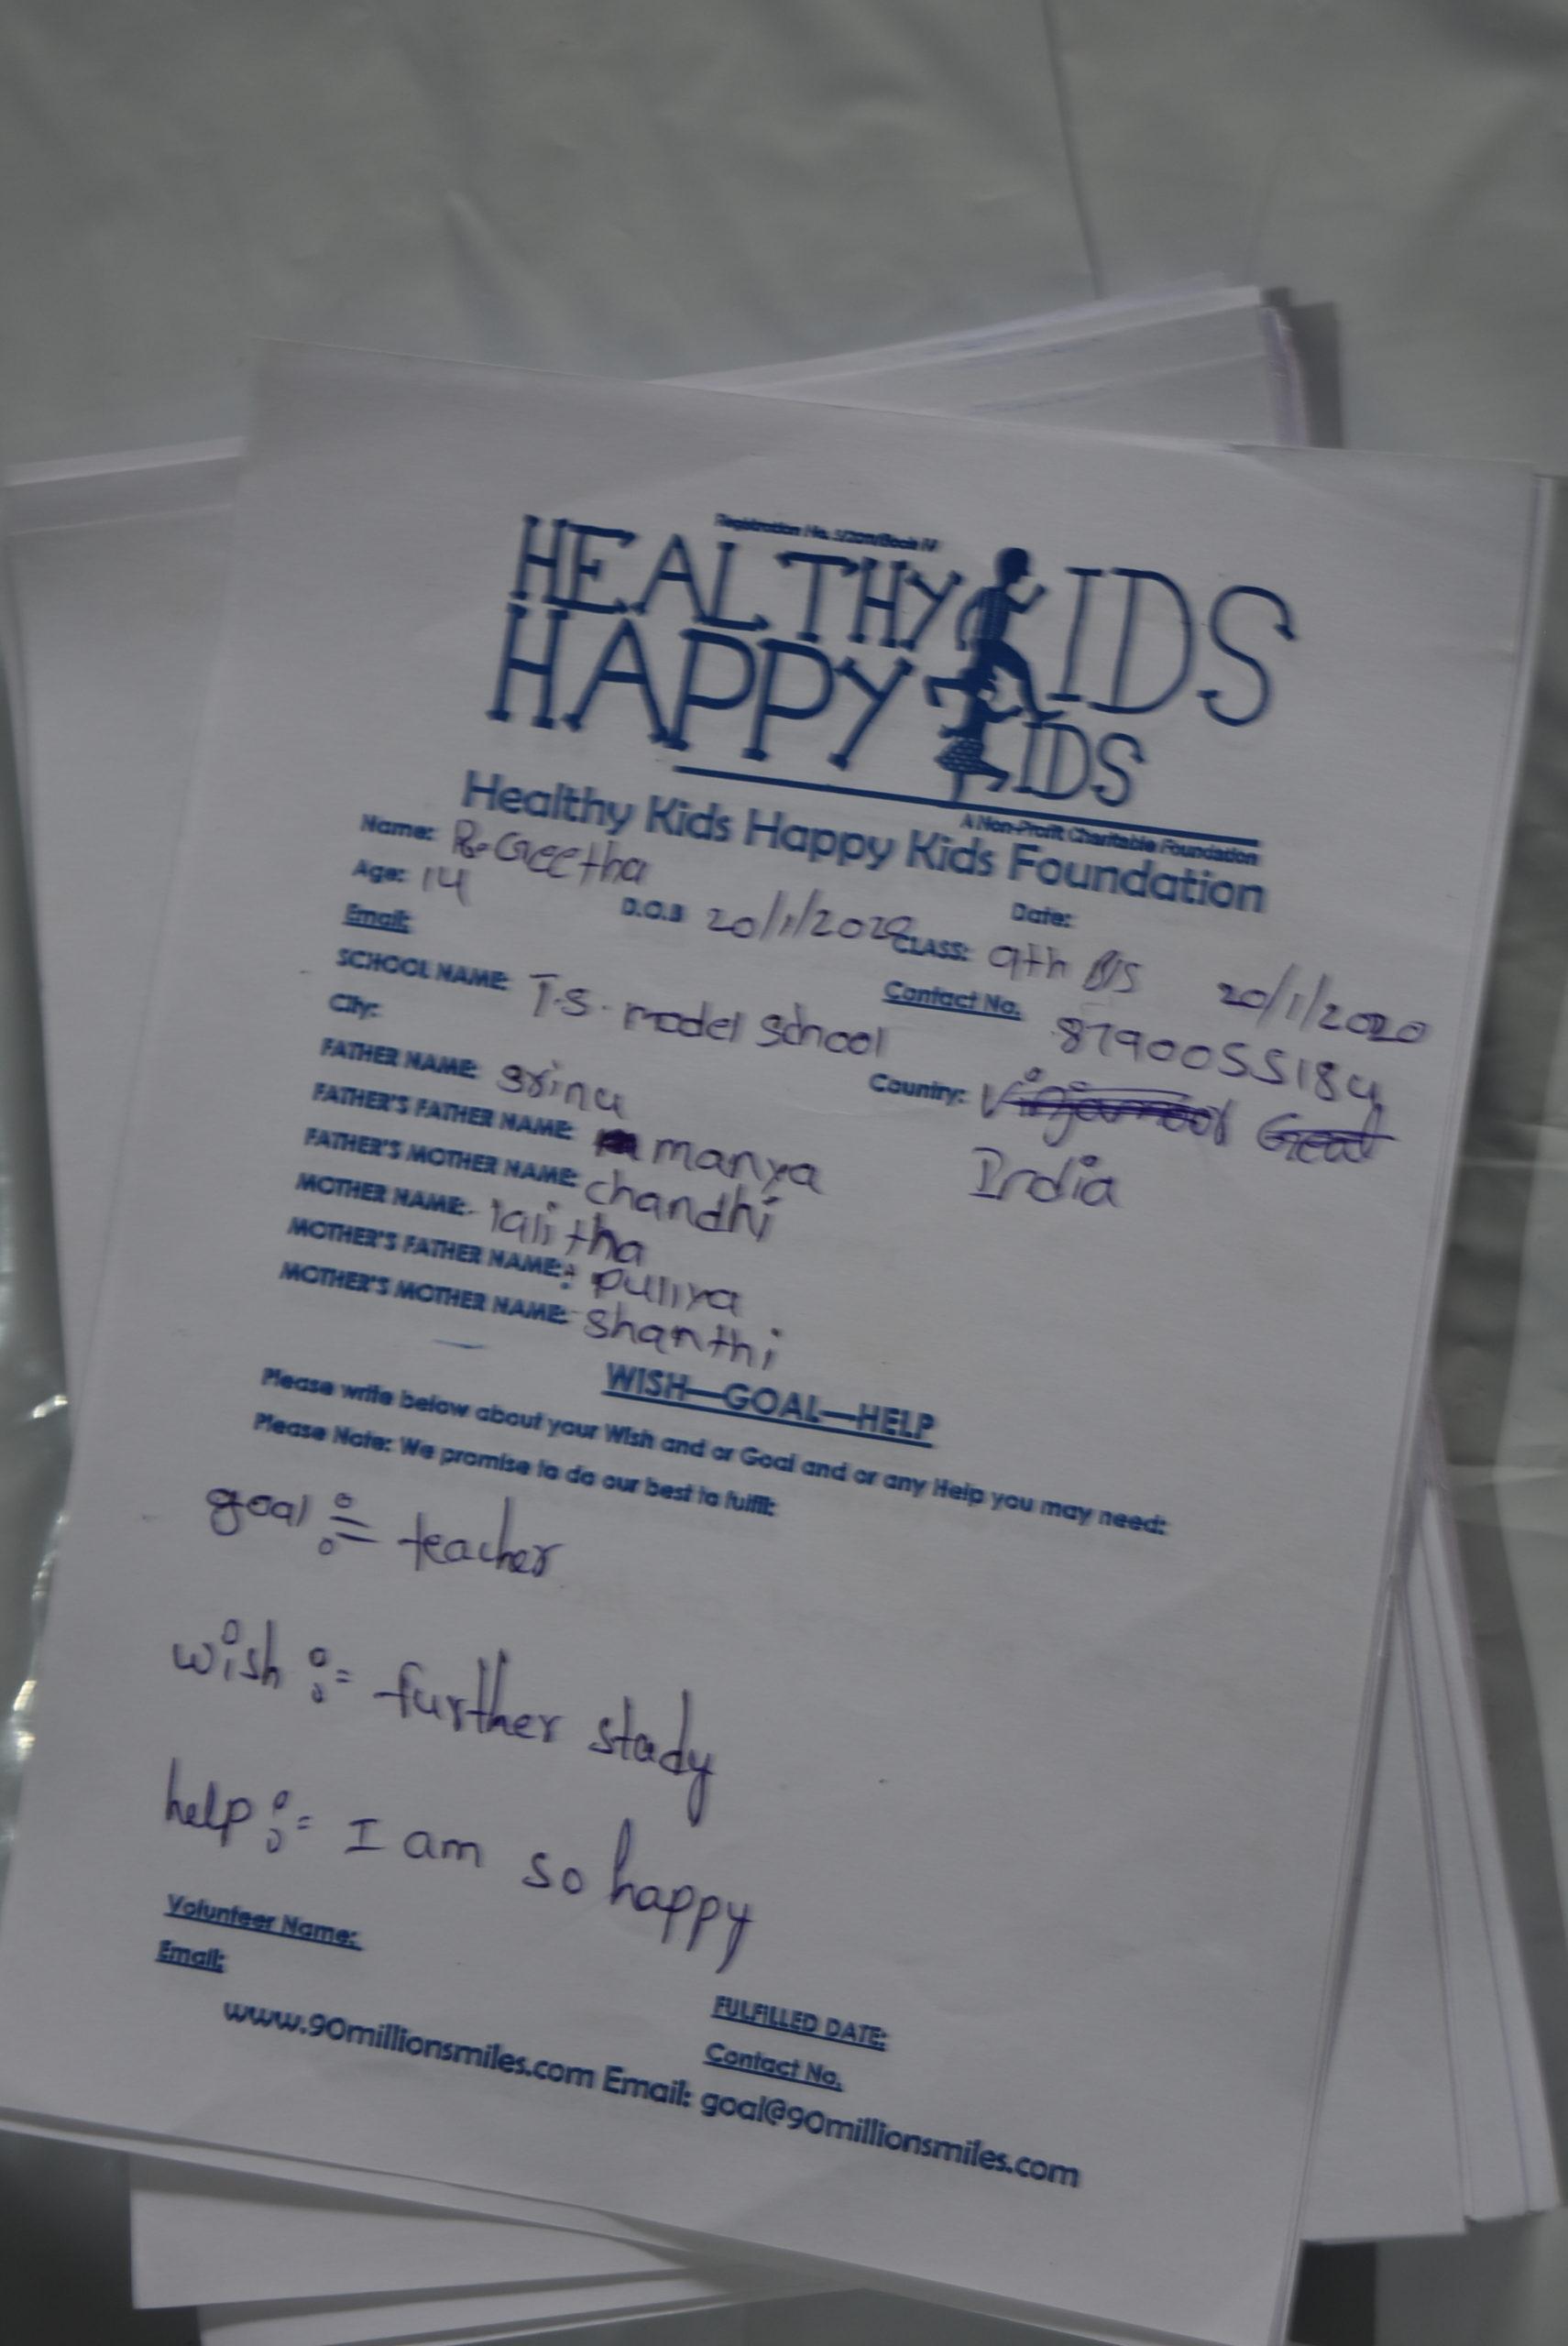 Registration No. 1/2011/Book IV
HEALTHY KIDS
HAPPY KIDS
A Non-Profit Charitable Foundation
Healthy Kids Happy Kids Foundation
Name: R. Geetha Date: 20/1/2020
Age: 14 D.O.B 20/1/2020 CLASS: 9th
Email: Contact No. 8790055184
SCHOOL NAME: T.S. model school
City: Country: India
FATHER NAME: srinu
FATHER'S FATHER NAME: manya
FATHER'S MOTHER NAME: chandhi
MOTHER NAME: lalitha
MOTHER'S FATHER NAME: puliya
MOTHER'S MOTHER NAME: shanthi
WISH—GOAL—HELP
Please write below about your Wish and or Goal and or any Help you may need:
Please Note: We promise to do our best to fulfil:
goal := teacher
wish := further stady
help := I am so happy
Volunteer Name: FULFILLED DATE:
Email: Contact No.
www.90millionsmiles.com Email: goal@90millionsmiles.com